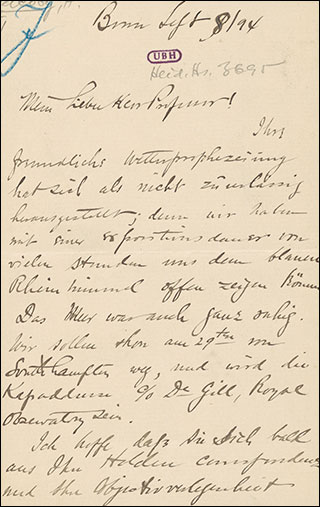 Bonn Sept 8/94
UBH
Heid. Hs. 3695
Mein lieber Herr Professor!
Ihre
freundliche Wetterprophezeiung
hat sich als nicht zuverlässig
herausgestellt; denn wir haben
mit einer Expositionsdauer von
vielen Stunden uns dem blauen
Rheinhimmel offen zeigen können
Das Meer war auch ganz ruhig.
Wir sollen schon am 29ten von
Southampton weg, und wird die
c/o Dr Gill, Royal
Observatory sein.
Ich hoffe daß Sie Sich bald
aus Ihr Holden correspondenz
und Ihr Objectivverlegenheit